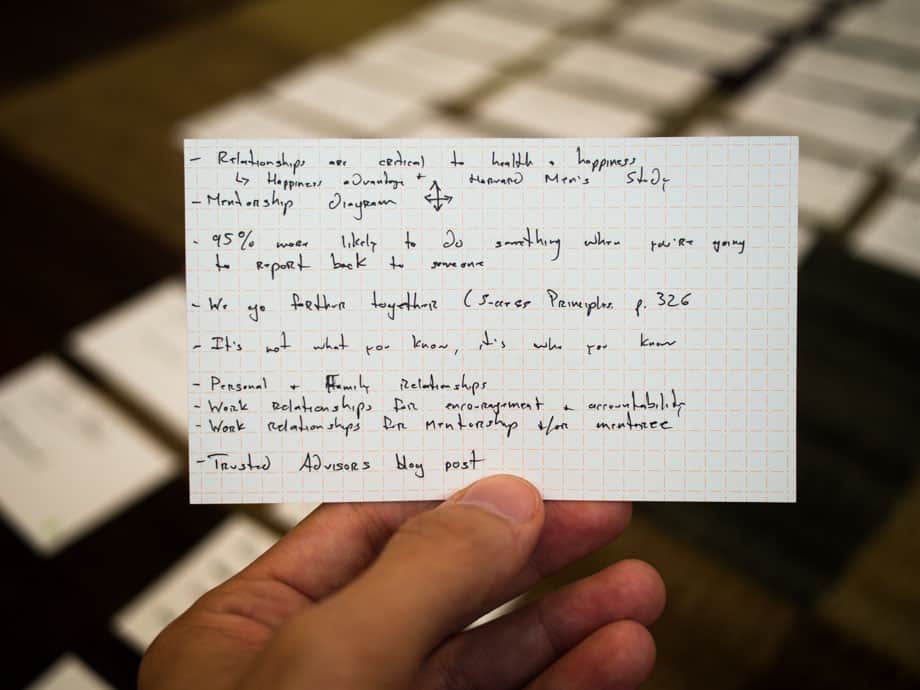 - Relationships are critical to health + happiness
↳ Happiness advantage + Harvard Men's Study
- Mentorship Diagram
- 95% more likely to do something when you're going
to report back to someone
- We go farther together (Success Principles p. 326
- It's not what you know, it's who you know
- Personal + Family Relationships
- Work Relationships for encouragement + accountability
- Work relationships for Mentorship +/or mentoree
- Trusted Advisors blog post